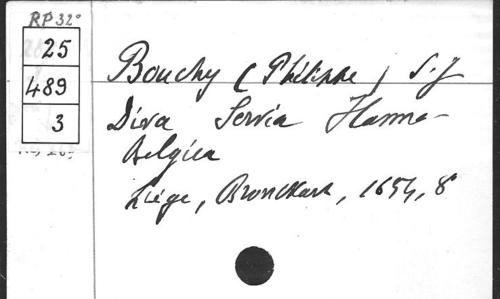 RP 32°
25
489
3
Bouchy (Philippe) S.J
Diva Servia Hanno-
Belgica
Liége, Bronckart, 1654, 8